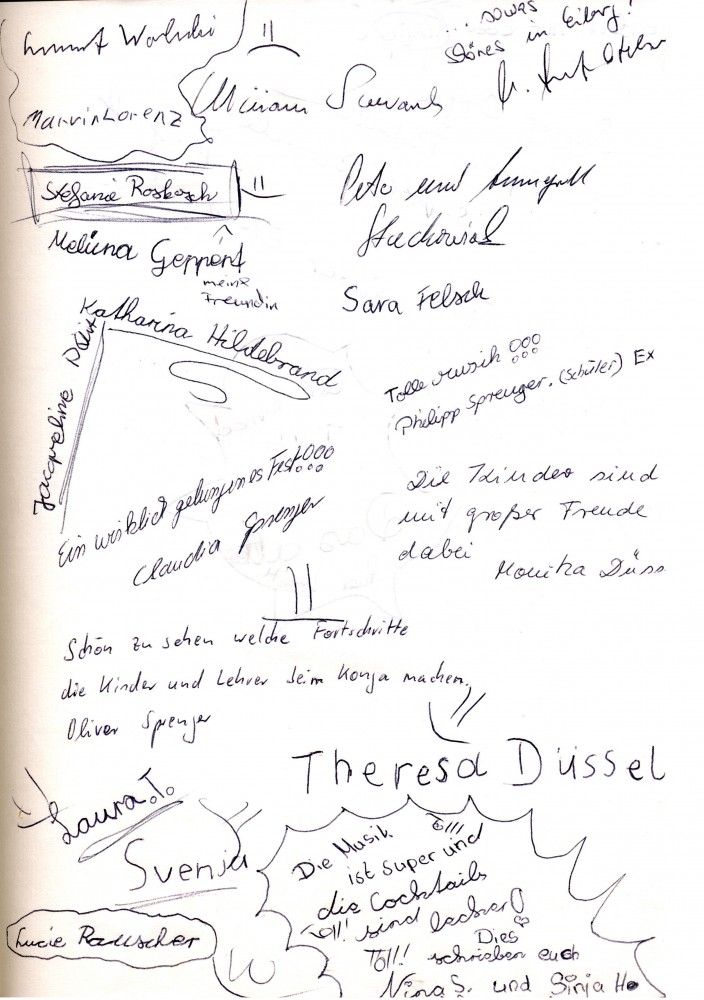 ... sowas
schönes in Eilorf!
Marvin Lorenz
Miriam
Stefanie Rosbach
und
Melina Geppert
meine
Freundin
Sara Felsch
Katharina Hildebrand
Jacqueline
Tolle Musik !!!
Philipp Sprenger. (Schüler) Ex
Ein wirklich gelungenes Fest!!!
Claudia Sprenger
Die Kinder sind
mit großer Freude
dabei
Monika Düss
Schön zu sehen welche Fortschritte
die Kinder und Lehrer beim Konga machen.
Oliver Sprenger
Theresa Düssel
Laura.T.
Svenja
Lucie Rauscher
Die Musik
ist super und
die Cocktails
Toll! sind lecker!
Dies
Toll! schrieben euch
Nina S. und Sinja H.